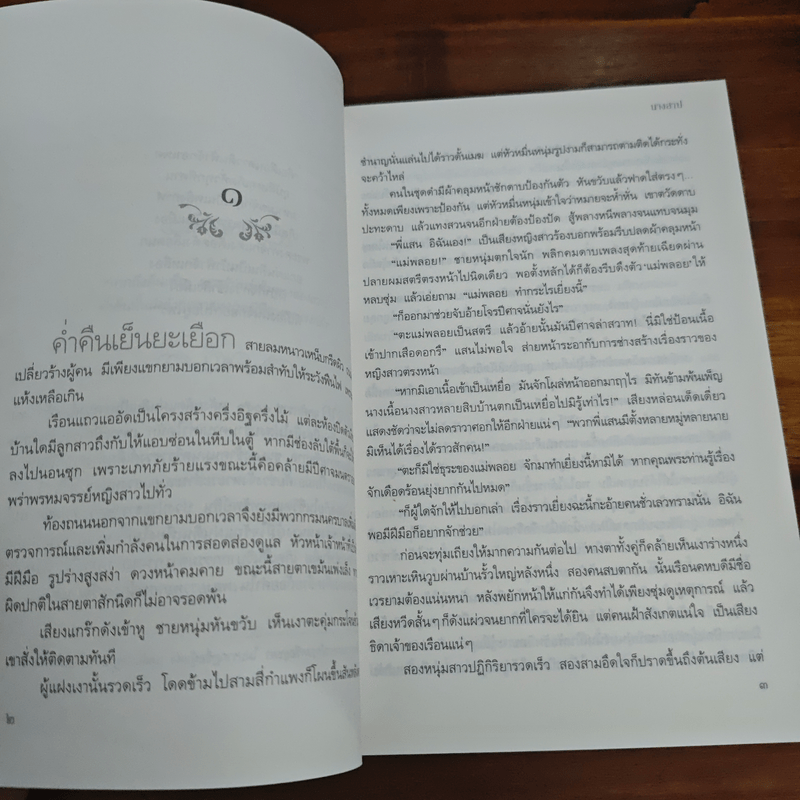 ๑
ค่ำคืนเย็นยะเยือก สายลมหนาวเหน็บกรีดผิว
เปลี่ยวร้างผู้คน มีเพียงแขกยามบอกเวลาพร้อมสำทับให้ระวังฟืนไฟ
แห้งเหลือเกิน
เรือนแถวแออัดเป็นโครงสร้างครึ่งอิฐครึ่งไม้ แต่ละห้องปิด
บ้านใดมีลูกสาวถึงกับให้แอบซ่อนในหีบในตู้ หากมีช่องลับใต้พื้น
ลงไปนอนซุก เพราะเภทภัยร้ายแรงขณะนี้คือคล้ายมีปีศาจ
พร่าพรหมจรรย์หญิงสาวไปทั่ว
ท้องถนนนอกจากแขกยามบอกเวลาจึงยังมีพวกกรมนครบาล
ตรวจการณ์และเพิ่มกำลังคนในการสอดส่องดูแล หัวหน้าเจ้าหน้าที่
มีฝีมือ รูปร่างสูงสง่า ดวงหน้าคมคาย ขณะนี้สายตาเขม้นเพ่งเล็ง
ผิดปกติในสายตาสักนิดก็ไม่อาจรอดพ้น
เสียงแกร๊กดังเข้าหู ชายหนุ่มหันขวับ เห็นเงาตะคุ่มกระโจน
เขาสั่งให้ติดตามทันที
ผู้แฝงเงานั้นรวดเร็ว โดดข้ามไปสามสี่กำแพงก็โผนขึ้น
๒
นางสาป
ชำนาญนั่นแล่นไปได้ราวดั้นเมฆ แต่หัวหมื่นหนุ่มรูปงามก็สามารถตามติดได้กระทั่ง
จะคว้าไหล่
คนในชุดดำมีผ้าคลุมหน้าชักดาบป้องกันตัว หันขวับแล้วฟาดใส่ตรงๆ...
ทั้งหมดเพียงเพราะป้องกัน แต่หัวหมื่นหนุ่มเข้าใจว่าหมายจะห้ำหั่น เขาตวัดดาบ
ปะทะดาบ แล้วแทงสวนจนอีกฝ่ายต้องปัดป้อง สู้พลางหนีพลางจนแทบจนมุม
“พี่แสน อิฉันเอง!” เป็นเสียงหญิงสาวร้องบอกพร้อมรีบปลดผ้าคลุมหน้า
“แม่พลอย!” ชายหนุ่มตกใจนัก พลิกคมดาบเพลงสุดท้ายเฉียดผ่าน
ปลายผมสตรีตรงหน้าไปนิดเดียว พอตั้งหลักได้ก็ต้องรีบดึงตัว ‘แม่พลอย’ ให้
หลบซุ่ม แล้วเอ่ยถาม “แม่พลอย ทำกระไรเยี่ยงนี้”
“ก็ออกมาช่วยจับอ้ายโจรปีศาจนั่นยังไร”
“ตะแม่พลอยเป็นสตรี แล้วอ้ายนั้นมันปีศาจล่าสวาท! นี่มิใช่ป้อนเนื้อ
เข้าปากเสือดอกรึ” แสนไม่พอใจ ส่ายหน้าระอากับการช่างสร้างเรื่องราวของ
หญิงสาวตรงหน้า
“หากมิเอาเนื้อเข้าเป็นเหยื่อ มันจักโผล่หน้าออกมาฤๅไร มิทันข้ามพ้นเพ็ญ
นางเนื้อนางสาวหลายสิบบ้านตกเป็นเหยื่อไปมิรู้เท่าไร!” เสียงหล่อนเด็ดเดี่ยว
แสดงชัดว่าจะไม่ลดราวาศอกให้อีกฝ่ายแน่ๆ “พวกพี่แสนมีตั้งหลายหมู่หลายนาย
มิเห็นได้เรื่องได้ราวสักคน!”
“ตะก็มิใช่ธุระของแม่พลอย จักมาทำเยี่ยงนี้หามิได้ หากคุณพระท่านรู้เรื่อง
จักเดือดร้อนยุ่งยากกันไปหมด”
“ก็ผู้ใดจักให้ไปบอกเล่า เรื่องราวเยี่ยงฉะนี้กะอ้ายคนชั่วเลวทรามนั่น อิฉัน
พอมีฝีมือก็อยากจักช่วย”
ก่อนจะทุ่มเถียงให้มากความกันต่อไป หางตาทั้งคู่ก็คล้ายเห็นเงาร่างหนึ่ง
ราวเหาะเหินวูบผ่านบ้านรั้วใหญ่หลังหนึ่ง สองคนสบตากัน นั่นเรือนคหบดีมีชื่อ
เวรยามต้องแน่นหนา หลังพยักหน้าให้แก่กันจึงทำได้เพียงซุ่มดูเหตุการณ์ แล้ว
เสียงหวีดสั้นๆ ก็ดังแผ่วจนยากที่ใครจะได้ยิน แต่คนเฝ้าสังเกตแน่ใจ เป็นเสียง
ธิดาเจ้าของเรือนแน่ๆ
สองหนุ่มสาวปฏิกิริยารวดเร็ว สองสามอึดใจก็ปราดขึ้นถึงต้นเสียง แต่
๓